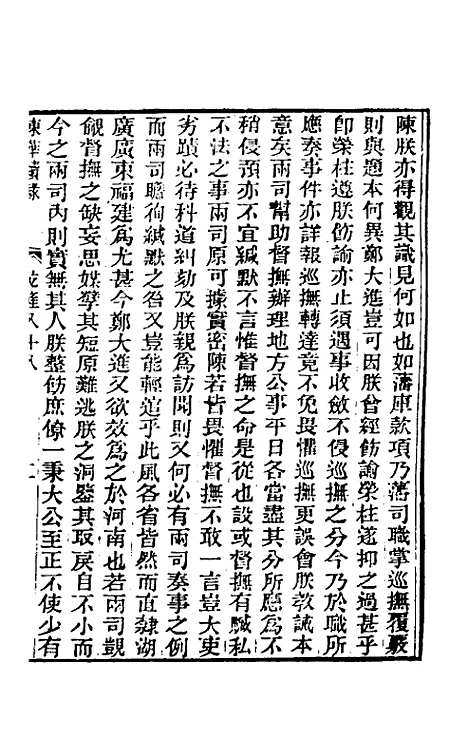 陳朕亦得觀其識見何如也如藩庫款項乃藩司職掌巡撫覆嚴
則與題本何異鄭大進豈可因朕曾經飭諭榮柱遂抑之過甚乎
卽榮柱遵朕飭諭亦止須遇事收斂不侵巡撫之分今乃於職所
應奏事件亦詳報巡撫轉達竟不免畏懼巡撫更誤會朕教誡本
意矣兩司幫助督撫辦理地方公事平日各當盡其分所應爲不
稍侵預亦不宜緘默不言惟督撫之命是從也設或督撫有贓私
不法之事兩司原可據實密陳若皆畏懼督撫不敢一言豈大吏
劣蹟必待科道糾劾及朕親爲訪聞則又何必有兩司奏事之例
而兩司瞻徇緘默之咎又豈能輕逭乎此風各省皆然而直隸湖
廣廣東福建爲尤甚今鄭大進又欲效爲之於河南也若兩司覬
覦督撫之缺妄思媒孽其短原難逃朕之洞鑒其取戾自不小而
今之兩司內則實無其人朕整飭庶僚一秉大公至正不使少有
東華續錄　乾隆八十八